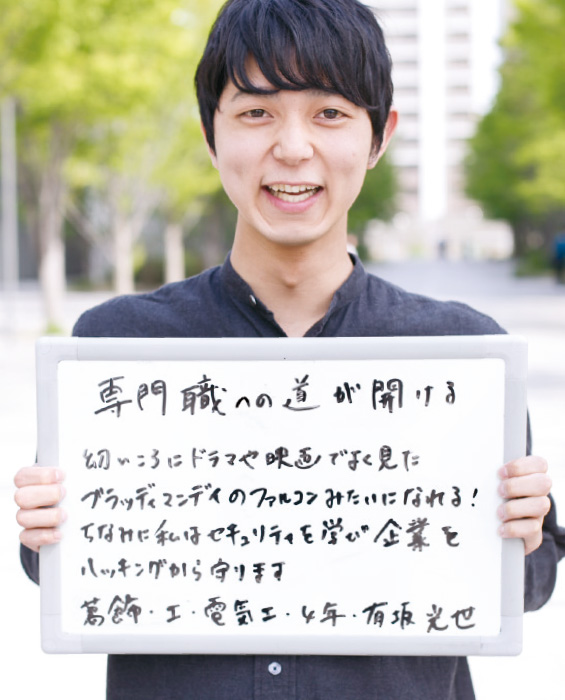 専門職への道が開ける
幼いころにドラマや映画でよく見た
ブラッディマンデイのファルコンみたいになれる!
ちなみに私はセキュリティを学び企業を
ハッキングから守ります
葛飾・工・電気工・4年・有坂光也